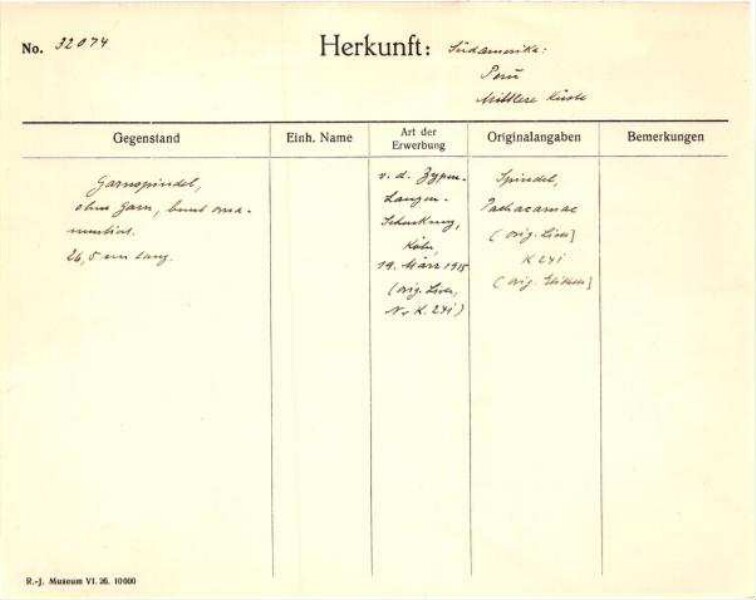 No. 32074
Herkunft: Südamerika:
Peru
Mittlere Küste
Gegenstand
Einh. Name
Art der
Erwerbung
Originalangaben
Bemerkungen
Garnspindel,
ohne Garn, bunt orna-
mentiert.
26,5 cm lang.
v. d. Zypen-
Langen-
Schenkung,
Köln,
19. März 1915
(orig. Liste,
Nr K. 241)
Spindel,
Pachacamac
(orig. Liste]
K 241
(orig. Etikett]
R.-J. Museum VI. 26. 10000